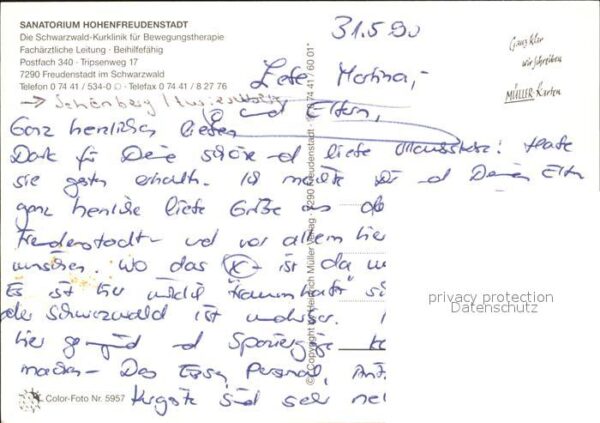 SANATORIUM HOHENFREUDENSTADT
Die Schwarzwald-Kurklinik für Bewegungstherapie
Fachärztliche Leitung · Beihilfefähig
Postfach 340 · Tripsenweg 17
7290 Freudenstadt im Schwarzwald
Telefon 0 74 41 / 534-0 · Telefax 0 74 41 / 8 27 76
31.5.90
Ganz klar
wir schreiben
MÜLLER-Karten
Liebe Martina,-
→ Schönberg
und Eltern,
Ganz herzlichen lieben
Dank für Deine schöne und liebe Habe
sie gestern erhalten. Ich möchte Dir und Deinen Eltern
ganz herzliche liebe Grüße aus
Freudenstadt – und vor allem hier
wünschen. Wo das X ist da
Es ist hier wirklich traumhaft
der Schwarzwald ist
hier und Spaziergänge
machen – Das Essen, Personal,
Kurgäste sind sehr
© Copyright by Heinrich Müller Verlag · 7290 Freudenstadt · 0 74 41 / 60 01
privacy protection
Datenschutz
Color-Foto Nr. 5957